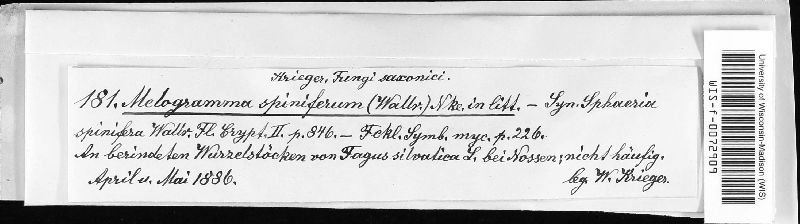 Krieger, Fungi saxonici.
181. Melogramma spiniferum (Wallr.) Nke. in litt. — Syn. Sphaeria
spinifera Wallr. Fl. Crypt. II. p. 846. — Fckl. Symb. myc. p. 226.
An berindeten Wurzelstöcken von Fagus silvatica L. bei Nossen; nicht häufig.
April u. Mai 1886.
leg. W. Krieger.
University of Wisconsin-Madison (WIS)
WIS-f-0072909